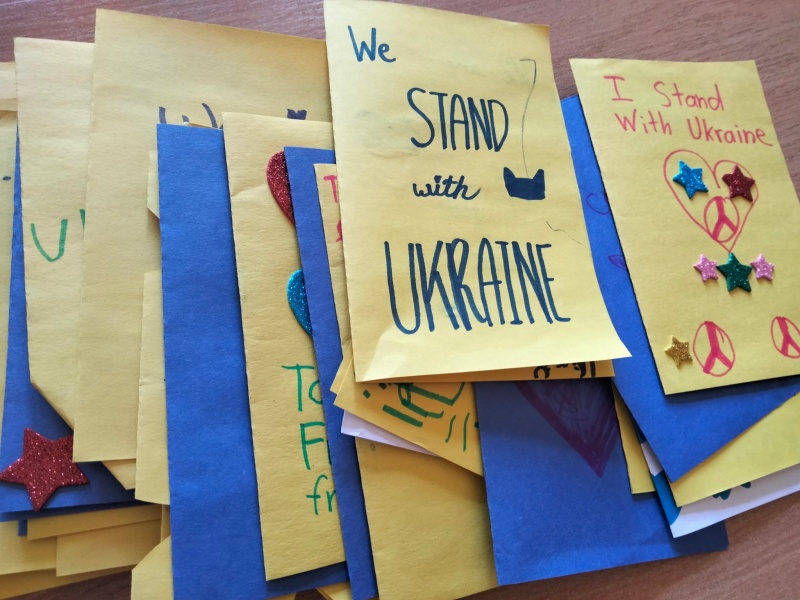 We
STAND
with
UKRAINE
I Stand
With Ukraine
To
Fr
fr